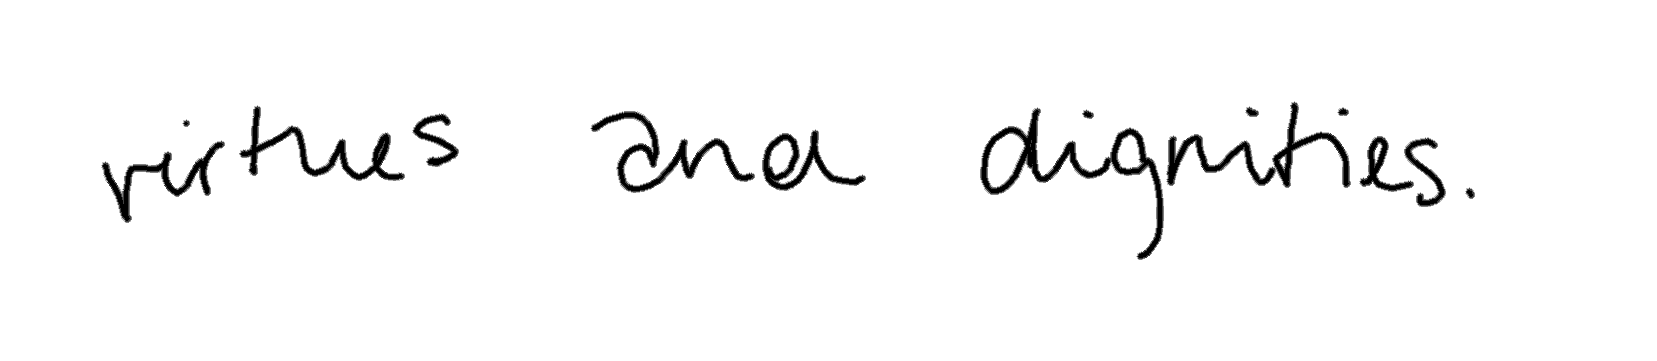 virtues and dignities.